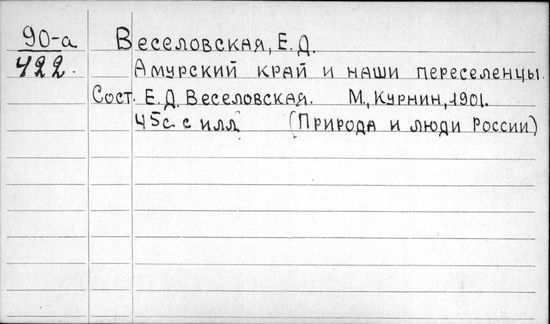 90-а Веселовская, Е. Д.
422. Амурский край и наши переселенцы.
Сост. Е. Д. Веселовская. М., Курнин, 1901.
45с. с илл. (Природа и люди России)